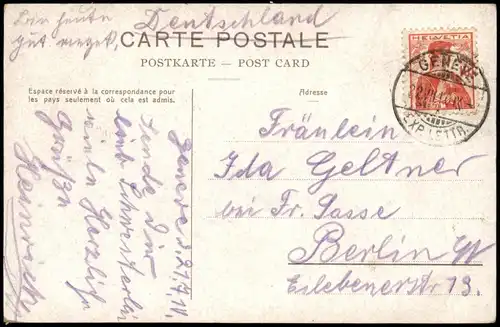 Bin heute
gut
Deutschland
CARTE POSTALE
POSTKARTE – POST CARD
Espace réservé à la correspondance pour
les pays seulement où cela est admis.
Adresse
HELVETIA
GENÈVE
EXP. LETTR.
Genève d. 21.7.10.
Sende Dir
lieb Schwesterlein
viele Herzliche
Grüße
Heinrich
Fräulein
Ida Geltner
bei Fr. Sasse
Berlin W
Eislebenerstr 13.